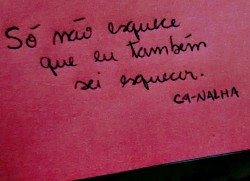 Só não esquece
que eu também
sei esquecer.
CA-NALHA